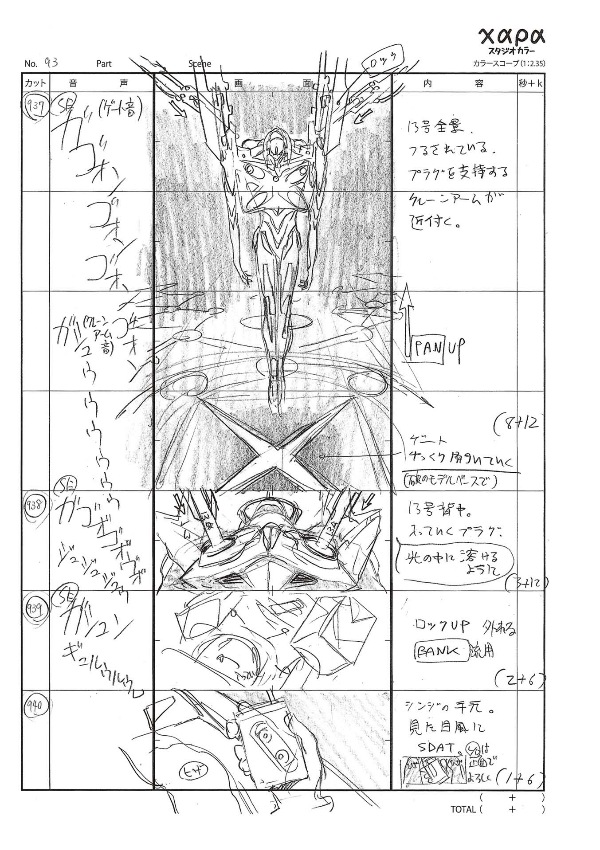 χαρα
スタジオカラー
No. 93 Part Scene カラースコープ (1:2.35)
カット 音 声 画 面 内 容 秒+k
ロック
937
SE (ゲート音)
ガゴォン
ゴォン
ゴォン
ゴォン
(クレーンアーム音)
ガシュゥウゥゥゥゥゥ
13号全景.
つるされている.
プラグを支持する
クレーンアームが
近付く。
PAN UP
(8+12
ゲート
ゆっくり開いていく
938
SE
13号背中.
入っていくプラグ.
光の中に溶ける
ように
(3+12)
939
SE
ガシュン
ギュルルルルル
ロックUP 外れる
BANK 流用
(2+6)
940
ヒザ
シンジの手元。
見た目風に
SDAT。
は
正面で
よろしく
(1+6)
( + )
TOTAL ( + )